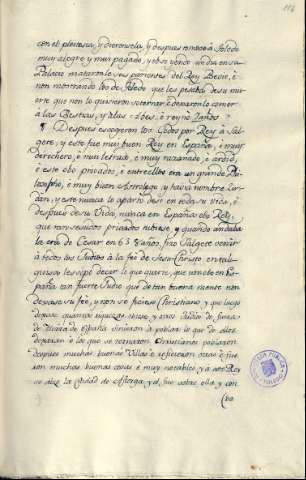 114
con el pleitesia, y dieronsela, y despues tornose à Toledo
muy alegre y muy pagado, y el yendo un dia en su
Palacio mataronle sus parientes del Rey Betir, è
non mostrando los de Toledo que les pesaba de su mu
erte que non lo quisieron soterrar è dexaronlo comer
à las Bestias, y à las Aves, è reynò años
Despues escogeron los Godos por Rey à Sal-
gete, y este fue muy buen Rey en España, è muy
derechero, è muy letrado, è muy razonado, è ardid, è
este obo privado, è entre ellos era un grande Phi-
losopho, è muy buen Astrologo, y havia nombre
y este nunca lo apartò de si en toda su vida, è
despues de su Vida, nunca en España obo Rey,
que non sedicos privados ubiese, y quando andaba
la era de Cesar en 638 años, fizo Salgete venir
à todos los Judios à la fee de Jesu-Christo en tal
guisa les supo decir lo que querie, que non obo en Es-
paña tan fuerte Judio que de tan buena mente non
dexase su fee, y non se ficiese Christiano, y que luego
dexase quantas riquezas ubiese, y otros Judios de fuera
de tierra de España vinieron à poblar lo que de ellos
dexaran è los que se tornaron Christianos poblaron
despues muchas buenas Villas è se ficieron otras è fue
ron muchas buenas cosas è muy notables, y à este Rey
se alzò la Ciudad de Astorga, y èl fue sobre ella y con